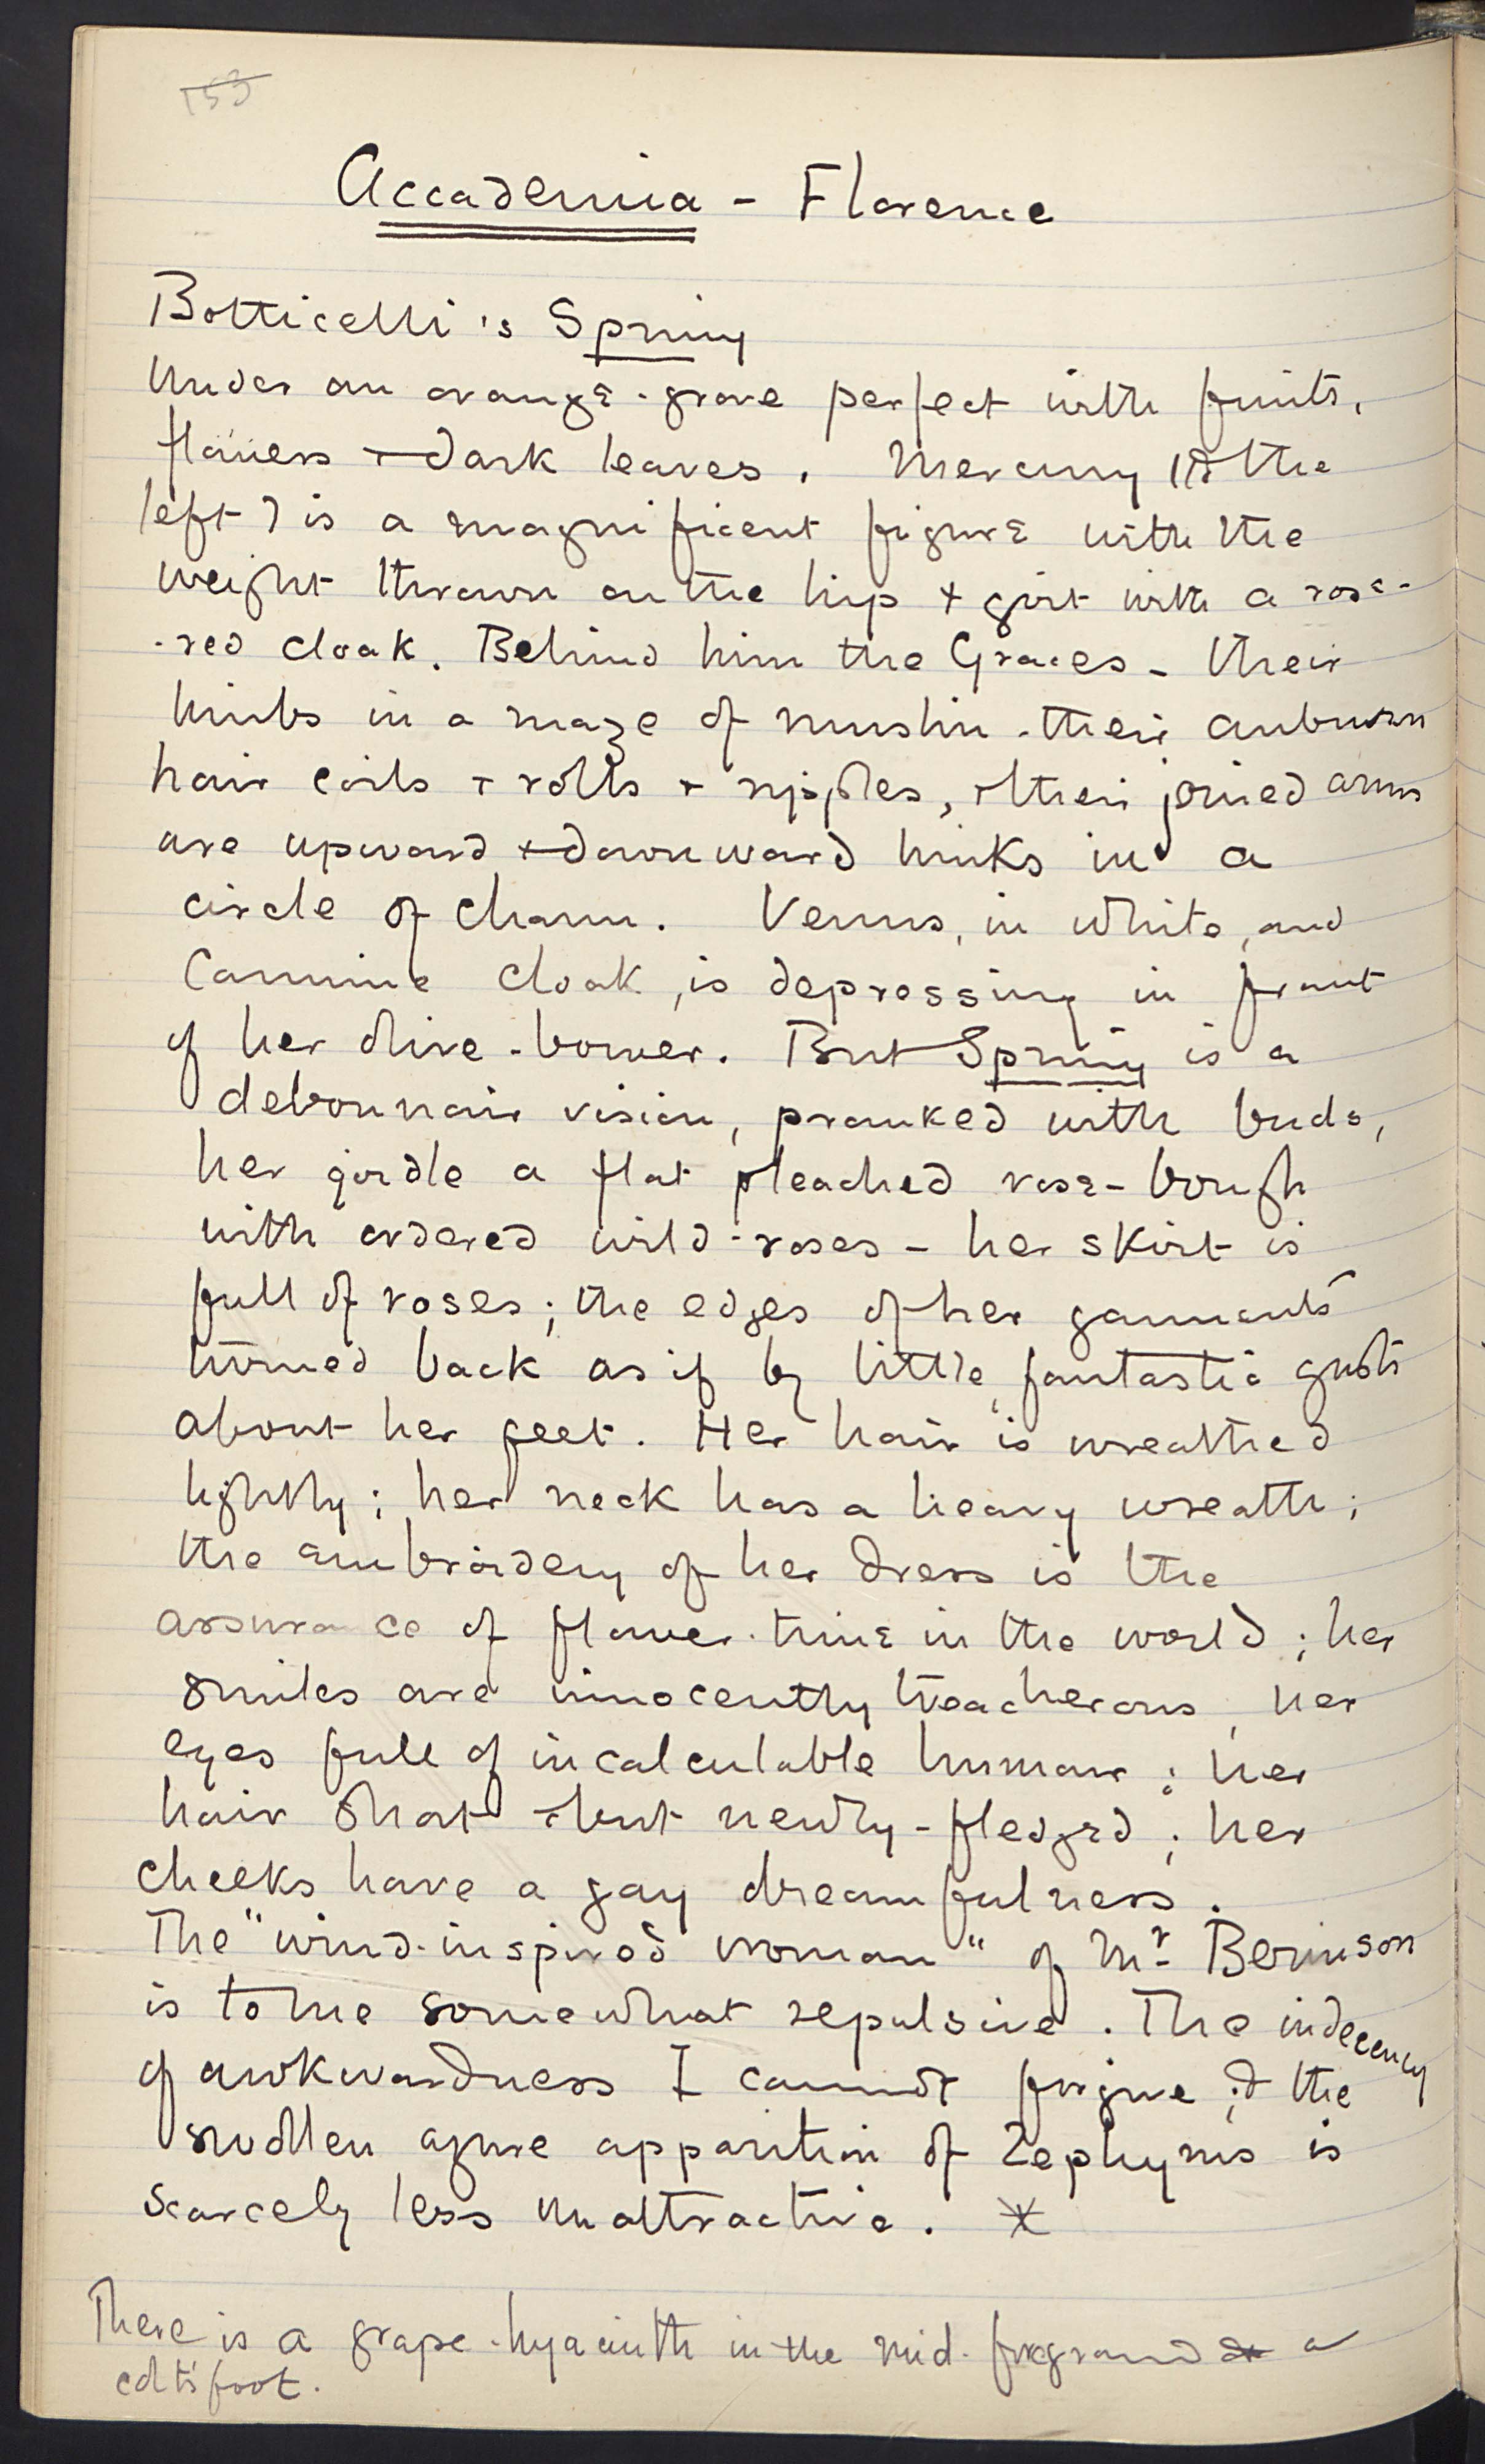 153
Accademia - Florence
Botticelli's Spring
Under an orange-grove perfect with fruits,
flowers + dark leaves. Mercury (to the
left) is a magnificent figure with the
weight thrown on the hip + girt with a rose-
-red cloak. Behind him the Graces - their
limbs in a maze of muslin - their auburn
hair coils + rolls + ripples, + their joined arms
are upward + downward links in a
circle of charm. Venus, in white, and
Carmine cloak, is depressing in front
of her olive-bower. But Spring is a
debonnair vision, pranked with buds,
her girdle a flat pleached rose-bough
with ordered wild-roses - her skirt is
full of roses; the edges of her garments
turned back as if by little fantastic gusts
about her feet. Her hair is wreathed
lightly; her neck has a heavy wreath;
the embroidery of her dress is the
assurance of flower-time in the world; her
smiles are innocently treacherous, her
eyes full of incalculable humour; her
hair short + but newly-fledged; her
cheeks have a gay dreamfulness.
The "wind-inspired woman" of Mr Berinson
is to me somewhat repulsive. The indecency
of awkwardness I cannot forgive; + the
swollen azure apparition of Zephyrus is
scarcely less unattractive. *
There is a grape-hyacinth in the mid-foreground + a
coltsfoot.